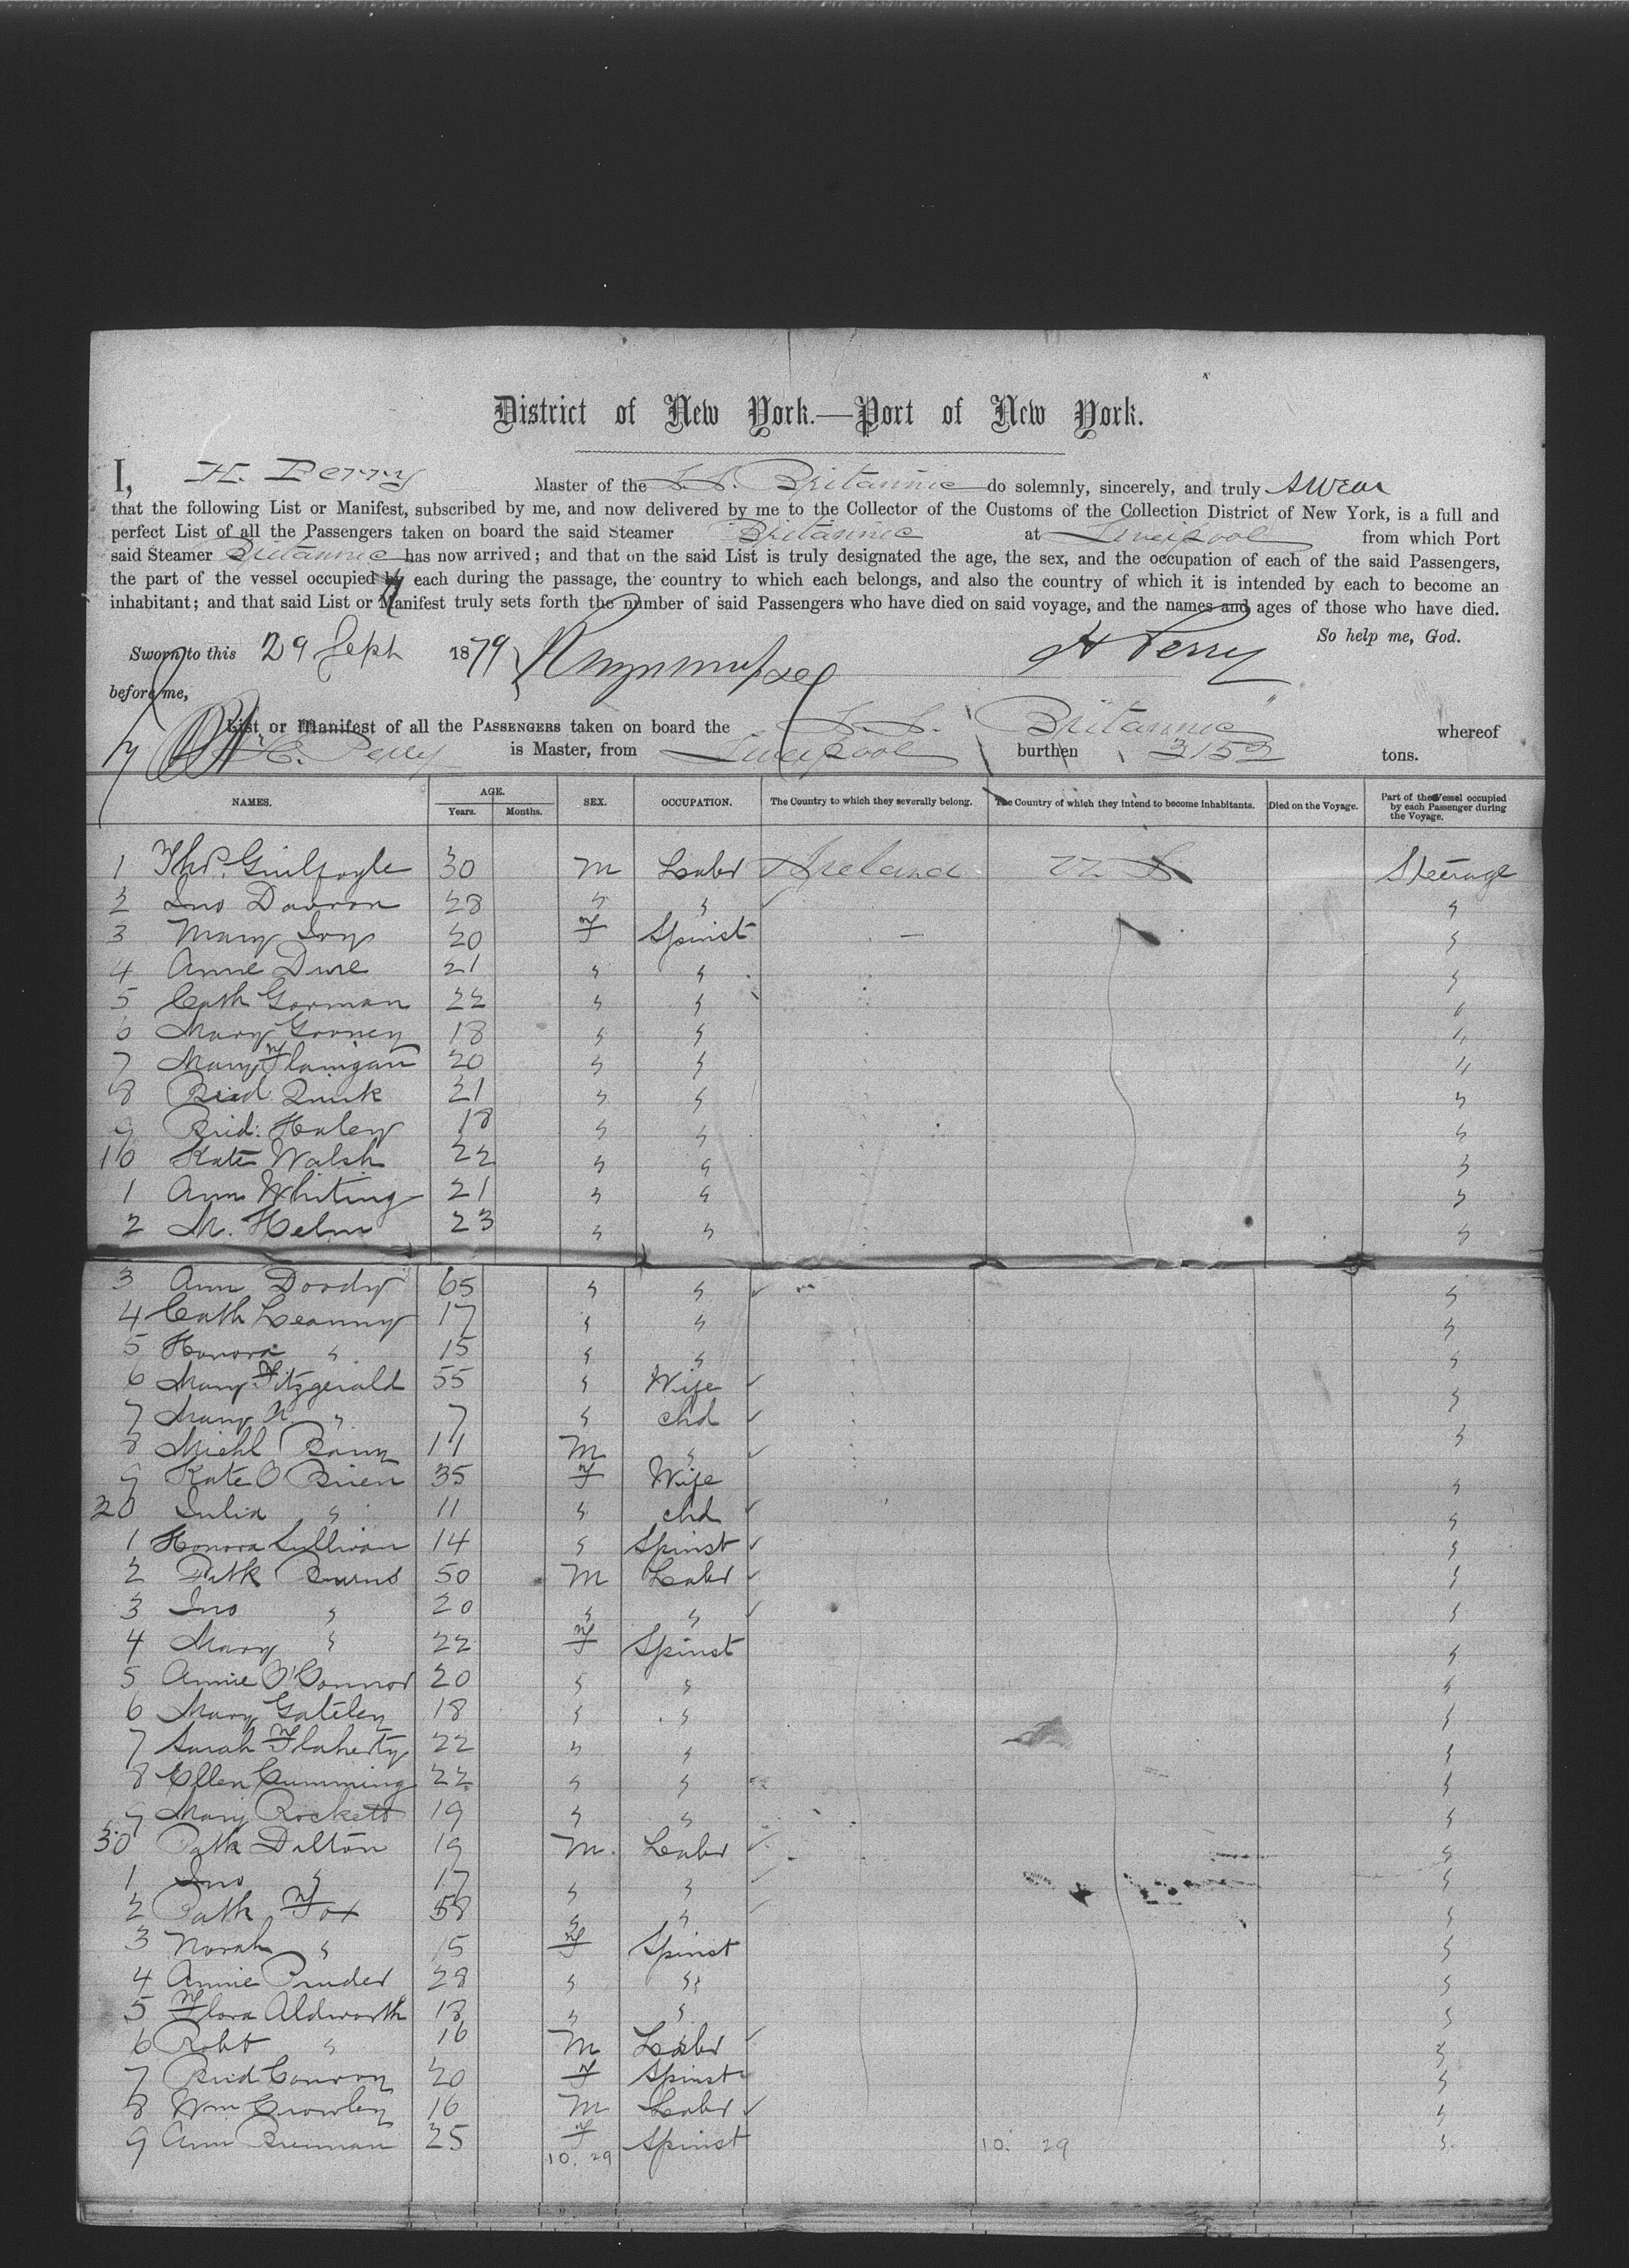 District of New York.—Port of New York.
I, H. Perry Master of the S.S. Britannic do solemnly, sincerely, and truly swear
that the following List or Manifest, subscribed by me, and now delivered by me to the Collector of the Customs of the Collection District of New York, is a full and
perfect List of all the Passengers taken on board the said Steamer Britannic at Liverpool from which Port
said Steamer Britannic has now arrived; and that on the said List is truly designated the age, the sex, and the occupation of each of the said Passengers,
the part of the vessel occupied by each during the passage, the country to which each belongs, and also the country of which it is intended by each to become an
inhabitant; and that said List or Manifest truly sets forth the number of said Passengers who have died on said voyage, and the names and ages of those who have died.
So help me, God.
Sworn to this 29 Sept 1879 H Perry
before me,
List or Manifest of all the PASSENGERS taken on board the S.S. "Britannic" whereof
H. Perry is Master, from Liverpool burthen 3152 tons.
NAMES. AGE. Years. Months. SEX. OCCUPATION. The Country to which they severally belong. The Country of which they intend to become inhabitants. Died on the Voyage. Part of the Vessel occupied by each Passenger during the Voyage.
1 Thos. Guilfoyle 30 M Labr Ireland U S Steerage
2 Jno Davron 28 " " "
3 Mary Joy 20 F Spinst "
4 Anne Dwe 21 " " "
5 Cath Gorman 22 " " "
6 Mary Gooney 18 " " "
7 Mary Flanigan 20 " " "
8 Brid Quirk 21 " " "
9 Brid: Haley 18 " " "
10 Kate Walsh 22 " " "
1 Ann Whiting 21 " " "
2 M. Helm 23 " " "
3 Ann Doody 65 " " "
4 Cath Leanny 17 " " "
5 Honora " 15 " " "
6 Mary Fitzgerald 55 " Wife "
7 Mary N. " 7 " chd "
8 Michl Barry 11 M " "
9 Kate O Brien 35 F Wife "
20 Julia " 11 " chd "
1 Honora Sullivan 14 " Spinst "
2 Patk Burns 50 M Labr "
3 Jno " 20 " " "
4 Mary " 22 F Spinst "
5 Annie O'Connor 20 " " "
6 Mary Gateley 18 " " "
7 Sarah Flaherty 22 " " "
8 Ellen Cumming 22 " " "
9 Mary Rockett 19 " " "
30 Patk Dalton 19 M. Labr "
1 Jno " 17 " " "
2 Patk Fox 58 " " "
3 Norah " 15 F Spinst "
4 Annie Pruder 28 " " "
5 Flora Aldworth 18 " " "
6 Robt " 16 M Labr "
7 Brid Conroy 20 F Spinst "
8 Wm Crowley 16 M Labr "
9 Ann Brennan 25 F Spinst "
10. 29 10. 29